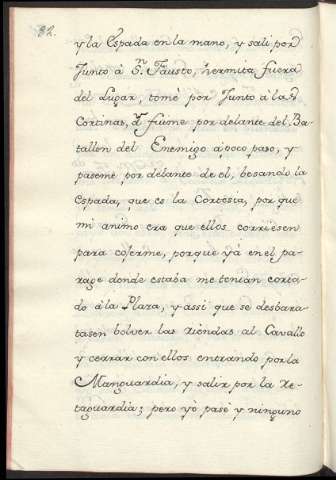 82.
y la Espada en la mano, y sali por
Junto à S.n Fausto, hermita fuera
del Lugar, tomè por Junto à las
Cortinas, q.e fuime por delante del Ba-
tallon del Enemigo à poco paso, y
paseme por delante de el, besando la
Espada, que es la Cortesia, por que
mi animo era que ellos corriesen
para coferme, porque yà en el pa-
rage donde estaba me tenian corta-
do à la Plaza, y assi que se desbara-
tasen bolver las riendas al Cavallo
y cerrar con ellos entrando por la
Manguardia, y salir por la Re-
taguardia; pero yò pasè y ninguno